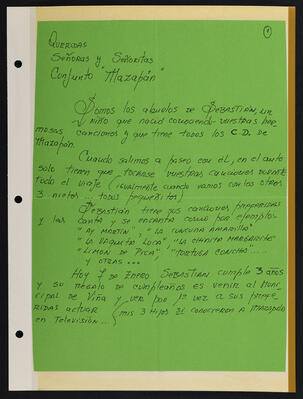 1
QUERIDAS
SEÑORAS Y SEÑORITAS
CONJUNTO "MAZAPÁN"
SOMOS LOS ABUELOS DE SEBASTIÁN, UN
NIÑO QUE NACIÓ CONOCIENDO VUESTRAS HER
MOSAS CANCIONES Y QUE TIENE TODOS LOS C.D. DE
MAZAPÁN.
CUANDO SALIMOS A PASEO CON ÉL, EN EL AUTO
SOLO TIENEN QUE TOCARSE VUESTRAS CANCIONES DURANTE
TODO EL VIAJE (IGUALMENTE CUANDO VAMOS CON LOS OTROS
3 NIETOS - TODOS PEQUEÑITOS)
SEBASTIÁN TIENE SUS CANCIONES PREFERIDAS
Y LAS CANTA Y SE ENCANTA COMO POR EJEMPLOS
"AY MARTÍN", "LA CUNCUNA AMARILLA"
"LA VAQUITA LOCA", "LA CHINITA MARGARITA"
"LIMON DE PICA" "TORTUGA CONCHA"...
Y OTRAS...
HOY 7 DE ENERO SEBASTIAN CUMPLE 3 AÑOS
Y SU REGALO DE CUMPLEAÑOS ES VENIR AL MUNI
CIPAL DE VIÑA Y VER POR 1ª VEZ A SUS PREFE
RIDAS ACTUAR (MIS 3 HIJOS SI CONOCIERON A MAZAPÁN
EN TELEVISIÓN...)